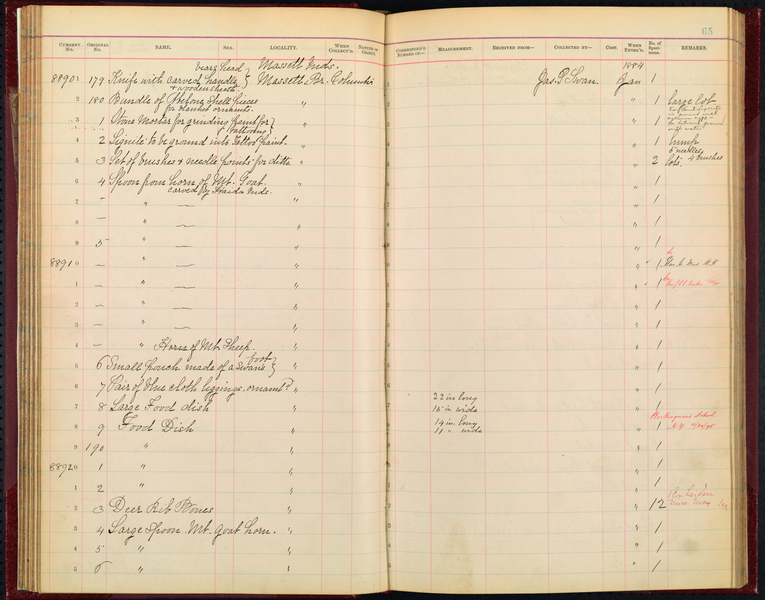 65
CURRENT No. ORIGINAL No. NAME. SEX. LOCALITY. WHEN COLLECT'D. NATURE OF OBJECT. CORRESPOND'G NUMBER OF— MEASUREMENT. RECEIVED FROM— COLLECTED BY— COST. WHEN ENTER'D. No. of Specimens. REMARKS.
bears head Massett Inds. 1884
8890 1 179 Knife with carved handle } Massett Br. Columbia Jas. G. Swan. Jan 1
& wooden sheath
2 180 Bundle of Shell pieces " " 1 Large lot
for blanket ornaments.
3 1 Stone Mortar for grinding paint for } " " 1
tattooing
4 2 Lignite to be ground into Tattoo paint. " " 1 lump
5 3 Set of brushes & needle points for ditto " " 2 lots 5 needles 4 brushes
6 4 Spoon from horn of Mt. Goat. " " 1
carved by Haida Inds.
7 — " — " " 1
8 — " — " " 1
9 5 " — " " 1
8891 0 — " — " " 1
1 — " — " " 1
2 — " — " " 1
3 — " — " " 1
4 — " Horn of Mt. Sheep. " " 1
5 6 Small pouch made of a Swan's foot } " " 1
6 7 Pair of blue cloth leggings ornamt'd " " 1
7 8 Large Food dish " 22 in long 15 in wide " 1
8 9 Food Dish " 14 in long 11 " wide " 1 Workingman's School N.Y.
9 190 " " " 1
8892 0 1 " " " 1
1 2 " " " 1
2 3 Deer Rib Bones " " 12
3 4 Large Spoon Mt. Goat horn. " " 1
4 5 " " " 1
5 6 " " " 1